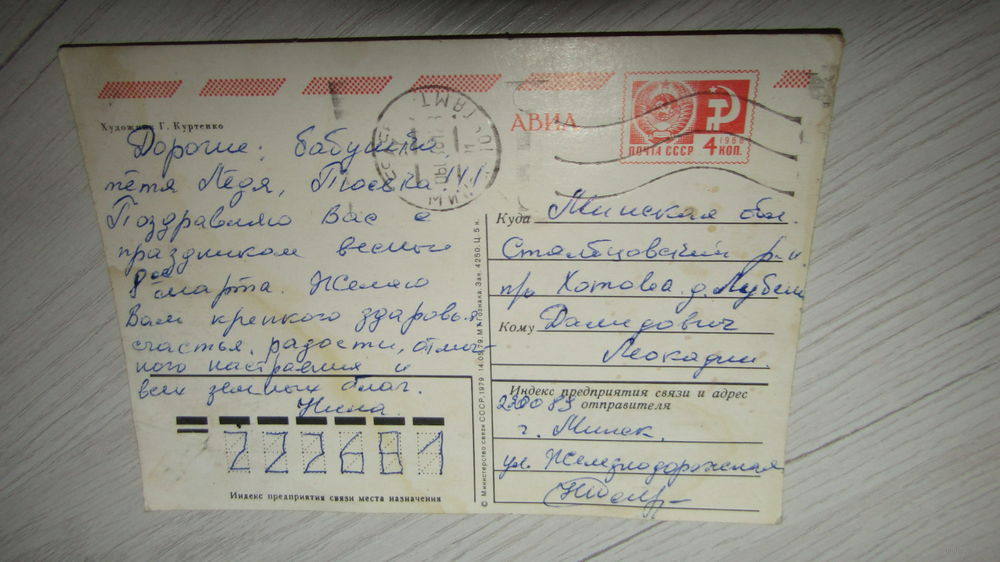 Художник Г. Куртенко
АВИА
ПОЧТА СССР 4 КОП. 1966
Дорогие: бабушка
тётя Лёдя, !
Поздравляю Вас с
праздником весны
8 ое марта. Желаю
Вам крепкого здоровья
счастья, радости, отлич-
ного настроения и
всех земных благ.
Нина.
222681
Индекс предприятия связи места назначения
© Министерство связи СССР. 1979 14.05.79. МПФ Гознака. Зак. 4250. Ц. 5 к.
Куда Минская обл.
Столбцовский р-н
п/о Хотова д. 
Кому Домидович
Леокадии
Индекс предприятия связи и адрес
отправителя
220089
г. Минск.
ул. Железнодорожная